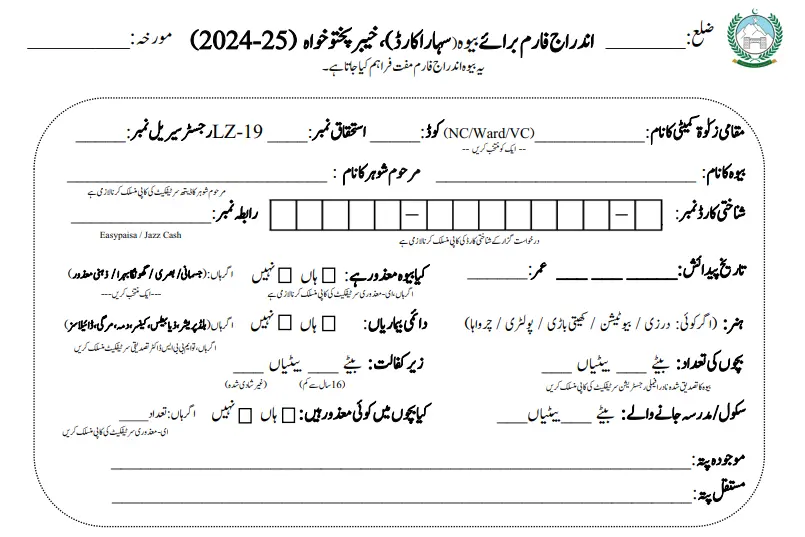 ضلع:__________ اندراج فارم برائے بیوہ (سہارا کارڈ)، خیبر پختونخواہ (2024-25) مورخہ:_____________
یہ بیوہ اندراج فارم مفت فراہم کیا جاتا ہے۔
مقامی زکوٰۃ کمیٹی کا نام:______________(NC/Ward/VC) کوڈ:______ استحقاق نمبر:_____ LZ-19 رجسٹر سیریل نمبر:______
-- ایک کو منتخب کریں --
بیوہ کا نام: ________________________________ مرحوم شوہر کا نام: ________________________________
مرحوم شوہر کا ڈیتھ سرٹیفکیٹ کی کاپی منسلک کرنا لازمی ہے
شناختی کارڈ نمبر: – – رابطہ نمبر:__________________
درخواست گزار کے شناختی کارڈ کی کاپی منسلک کرنا لازمی ہے Easypaisa / Jazz Cash
تاریخ پیدائش: ____ ____ ____ عمر:________ کیا بیوہ معذور ہے: □ ہاں □ نہیں اگر ہاں: (جسمانی/ بصری / گونگا بہرا / ذہنی معذور)
اگر ہاں، ای-معذوری سرٹیفکیٹ کی کاپی منسلک کرنا لازمی ہے ---ایک منتخب کریں---
ہنر: (اگر کوئی: درزی / بیوٹیشن / کھیتی باڑی / پولٹری / چرواہا) دائمی بیماریاں: □ ہاں □ نہیں اگر ہاں (بلڈ پریشر، ذیابیطس، کینسر، دمہ، مرگی، ڈائیلاسز)
اگر ہاں، تو ایم بی بی ایس ڈاکٹر تصدیقی سرٹیفکیٹ منسلک کریں
بچوں کی تعداد: بیٹے ____ بیٹیاں ____ زیر کفالت: بیٹے ____ بیٹیاں ____
بیوہ کا تصدیق شدہ نادرا فیملی رجسٹریشن سرٹیفکیٹ کی کاپی منسلک کریں (16 سال سے کم) (غیر شادی شدہ)
سکول/مدرسہ جانے والے: بیٹے ____ بیٹیاں____ کیا بچوں میں کوئی معذور ہیں: □ ہاں □ نہیں اگر ہاں: تعداد____
ای-معذوری سرٹیفکیٹ کی کاپی منسلک کریں
موجودہ پتہ:______________________________________________
مستقل پتہ:______________________________________________